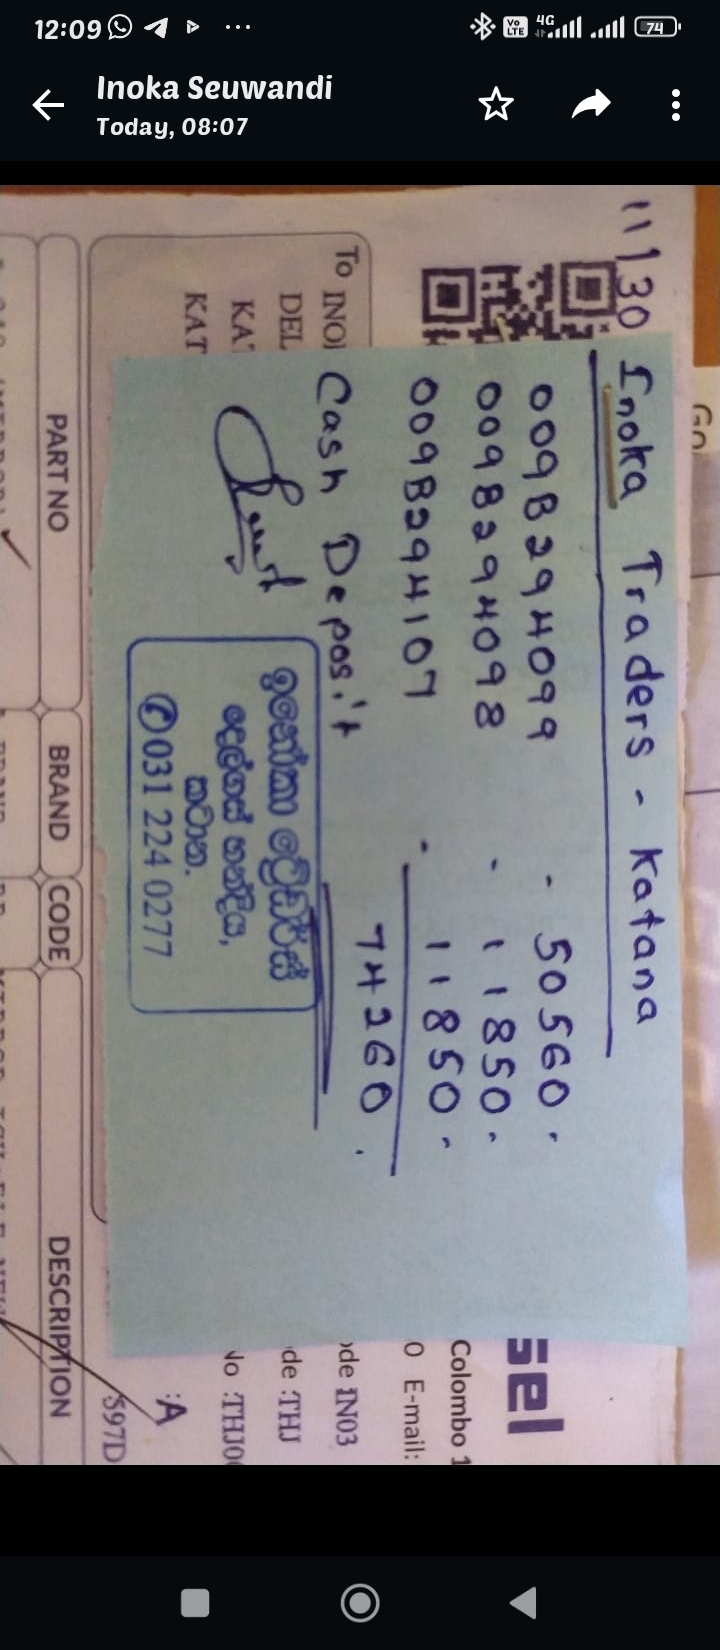 12:09
4G
Vo LTE
74
Inoka Seuwandi
Today, 08:07
11130
Inoka Traders - Katana
009B294099 - 50560.
009B294098 - 11850.
009B294107 - 11850.
74260.
Cash Deposit
ඉනෝකා ට්‍රේඩර්ස්
දෙල්ගස් හන්දිය,
කටාන.
031 224 0277
To INO
DEL
KA
KAT
sel
Colombo 1
0 E-mail:
ode IN03
de :THJ
No :THJ0
:A
S97D
PART NO
BRAND
CODE
DESCRIPTION